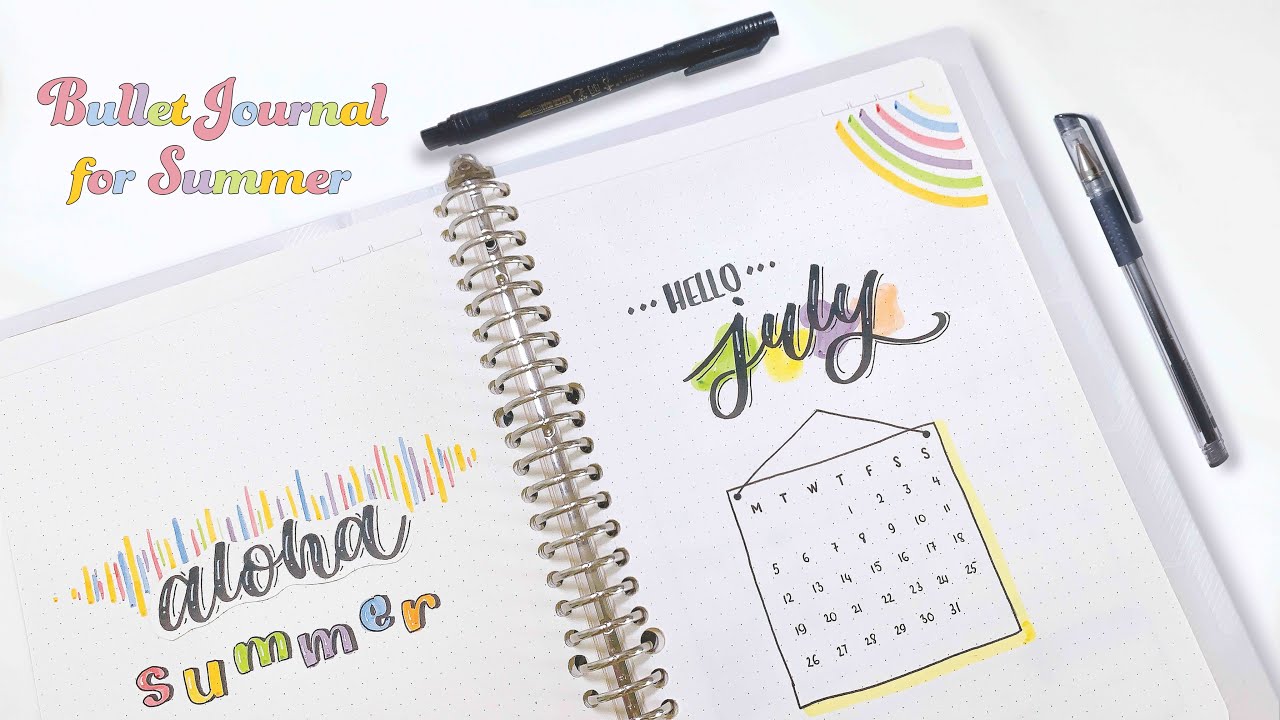 Bullet Journal
for Summer
aloha
summer
... HELLO ...
july
M T W T F S S
1 2 3 4
5 6 7 8 9 10 11
12 13 14 15 16 17 18
19 20 21 22 23 24 25
26 27 28 29 30 31